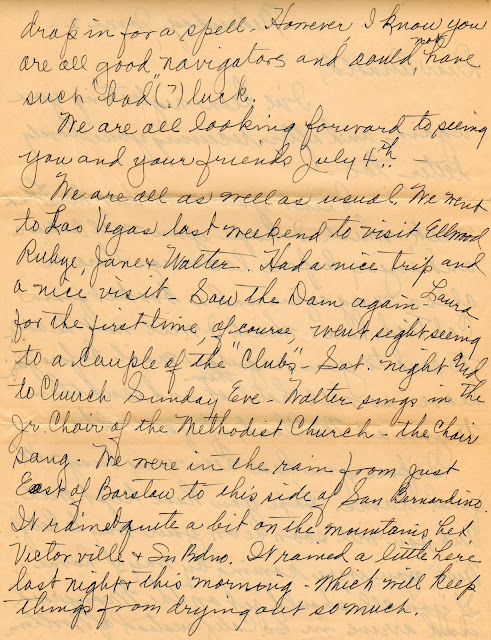 drop in for a spell. However I know you
are all good navigators and could not have
such "bad"(?) luck.
We are all looking forward to seeing
you and your friends July 4th. -
We are all as well as usual. We went
to Las Vegas last weekend to visit Ellwood
Rubye, Jane & Walter. Had a nice trip and
a nice visit - Saw the Dam again - Laura
for the first time, of course, went sight seeing
to a couple of the "Clubs" - Sat. night and
to Church Sunday Eve - Walter sings in the
Jr. Choir of the Methodist Church - the Choir
sang. We were in the rain from just
East of Barstow to this side of San Bernardino.
It rained quite a bit on the mountains bet.
Victorville & Sn Bdno. It rained a little here
last night & this morning - Which will keep
things from drying out so much.